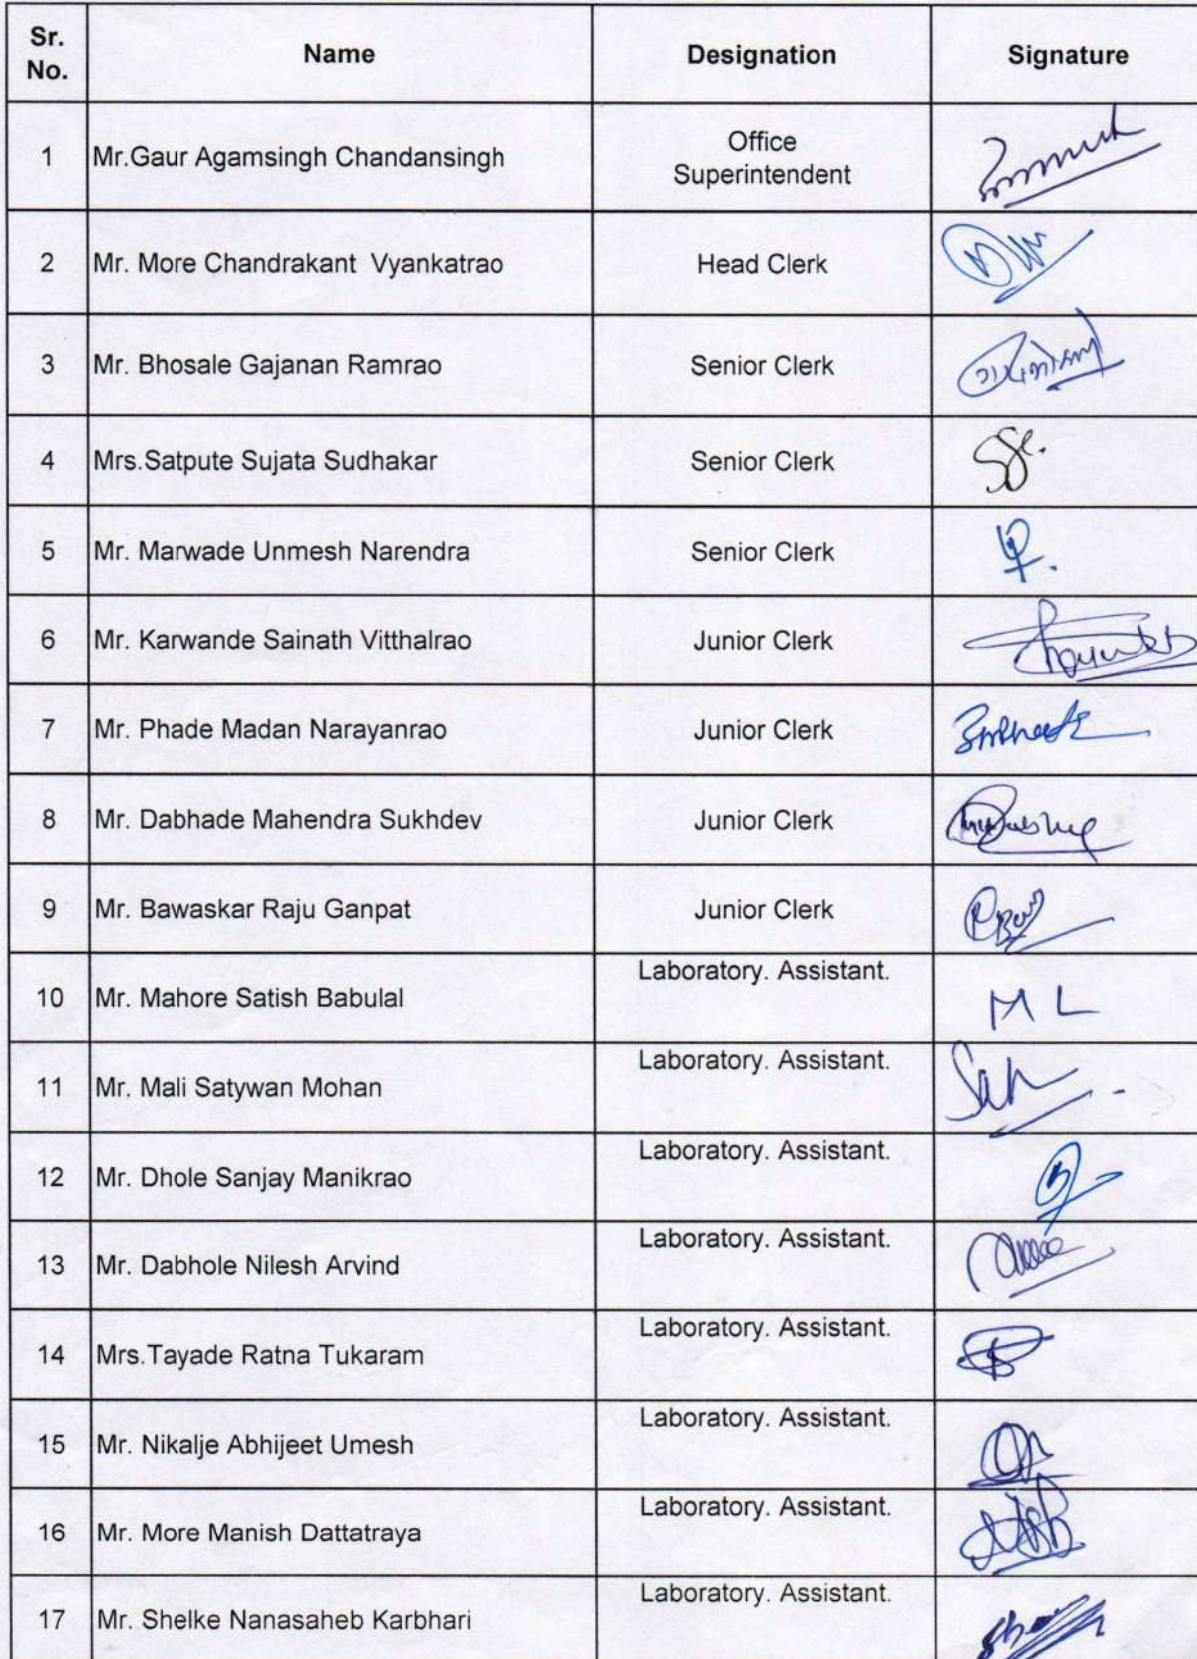 Sr. No. Name Designation Signature
1 Mr.Gaur Agamsingh Chandansingh Office Superintendent
2 Mr. More Chandrakant Vyankatrao Head Clerk
3 Mr. Bhosale Gajanan Ramrao Senior Clerk
4 Mrs.Satpute Sujata Sudhakar Senior Clerk
5 Mr. Marwade Unmesh Narendra Senior Clerk
6 Mr. Karwande Sainath Vitthalrao Junior Clerk
7 Mr. Phade Madan Narayanrao Junior Clerk
8 Mr. Dabhade Mahendra Sukhdev Junior Clerk
9 Mr. Bawaskar Raju Ganpat Junior Clerk
10 Mr. Mahore Satish Babulal Laboratory. Assistant. M L
11 Mr. Mali Satywan Mohan Laboratory. Assistant.
12 Mr. Dhole Sanjay Manikrao Laboratory. Assistant.
13 Mr. Dabhole Nilesh Arvind Laboratory. Assistant.
14 Mrs.Tayade Ratna Tukaram Laboratory. Assistant.
15 Mr. Nikalje Abhijeet Umesh Laboratory. Assistant.
16 Mr. More Manish Dattatraya Laboratory. Assistant.
17 Mr. Shelke Nanasaheb Karbhari Laboratory. Assistant.